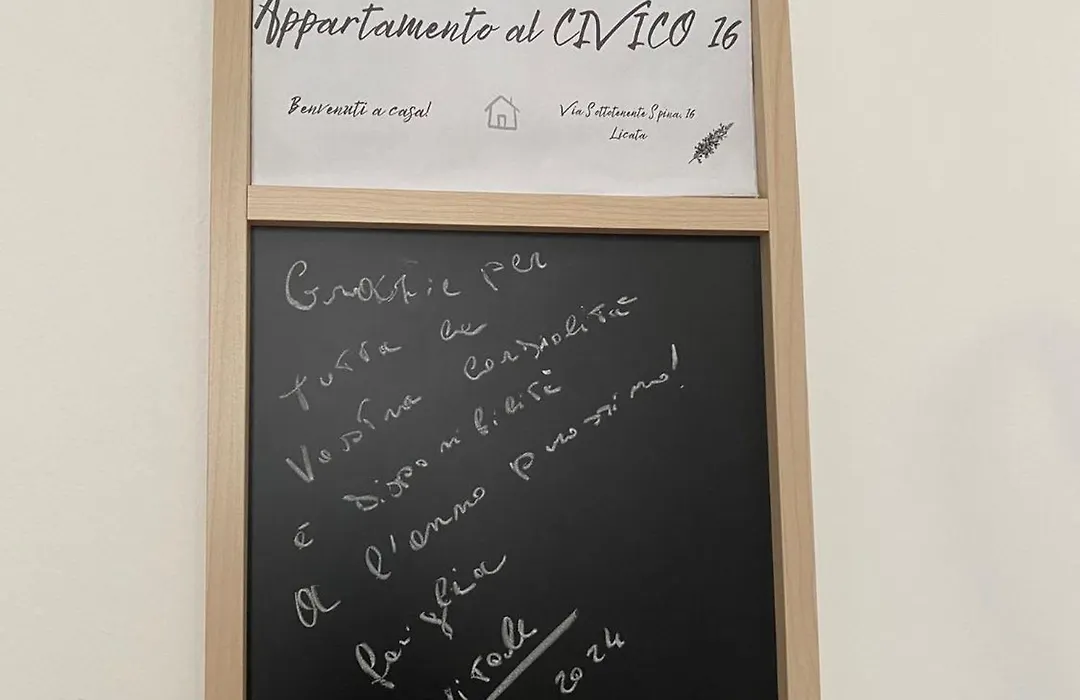 Appartamento al CIVICO 16
Benvenuti a casa!
Via Sottotenente Spina, 16
Licata
Grazie per
tutta la
Vostra Cordialità
é Disponibilità
A l'anno prossimo!
famiglia
Vitale
2024